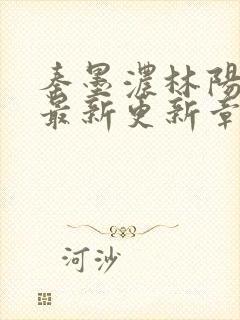 秦墨濃林陽
最新更新章
河沙